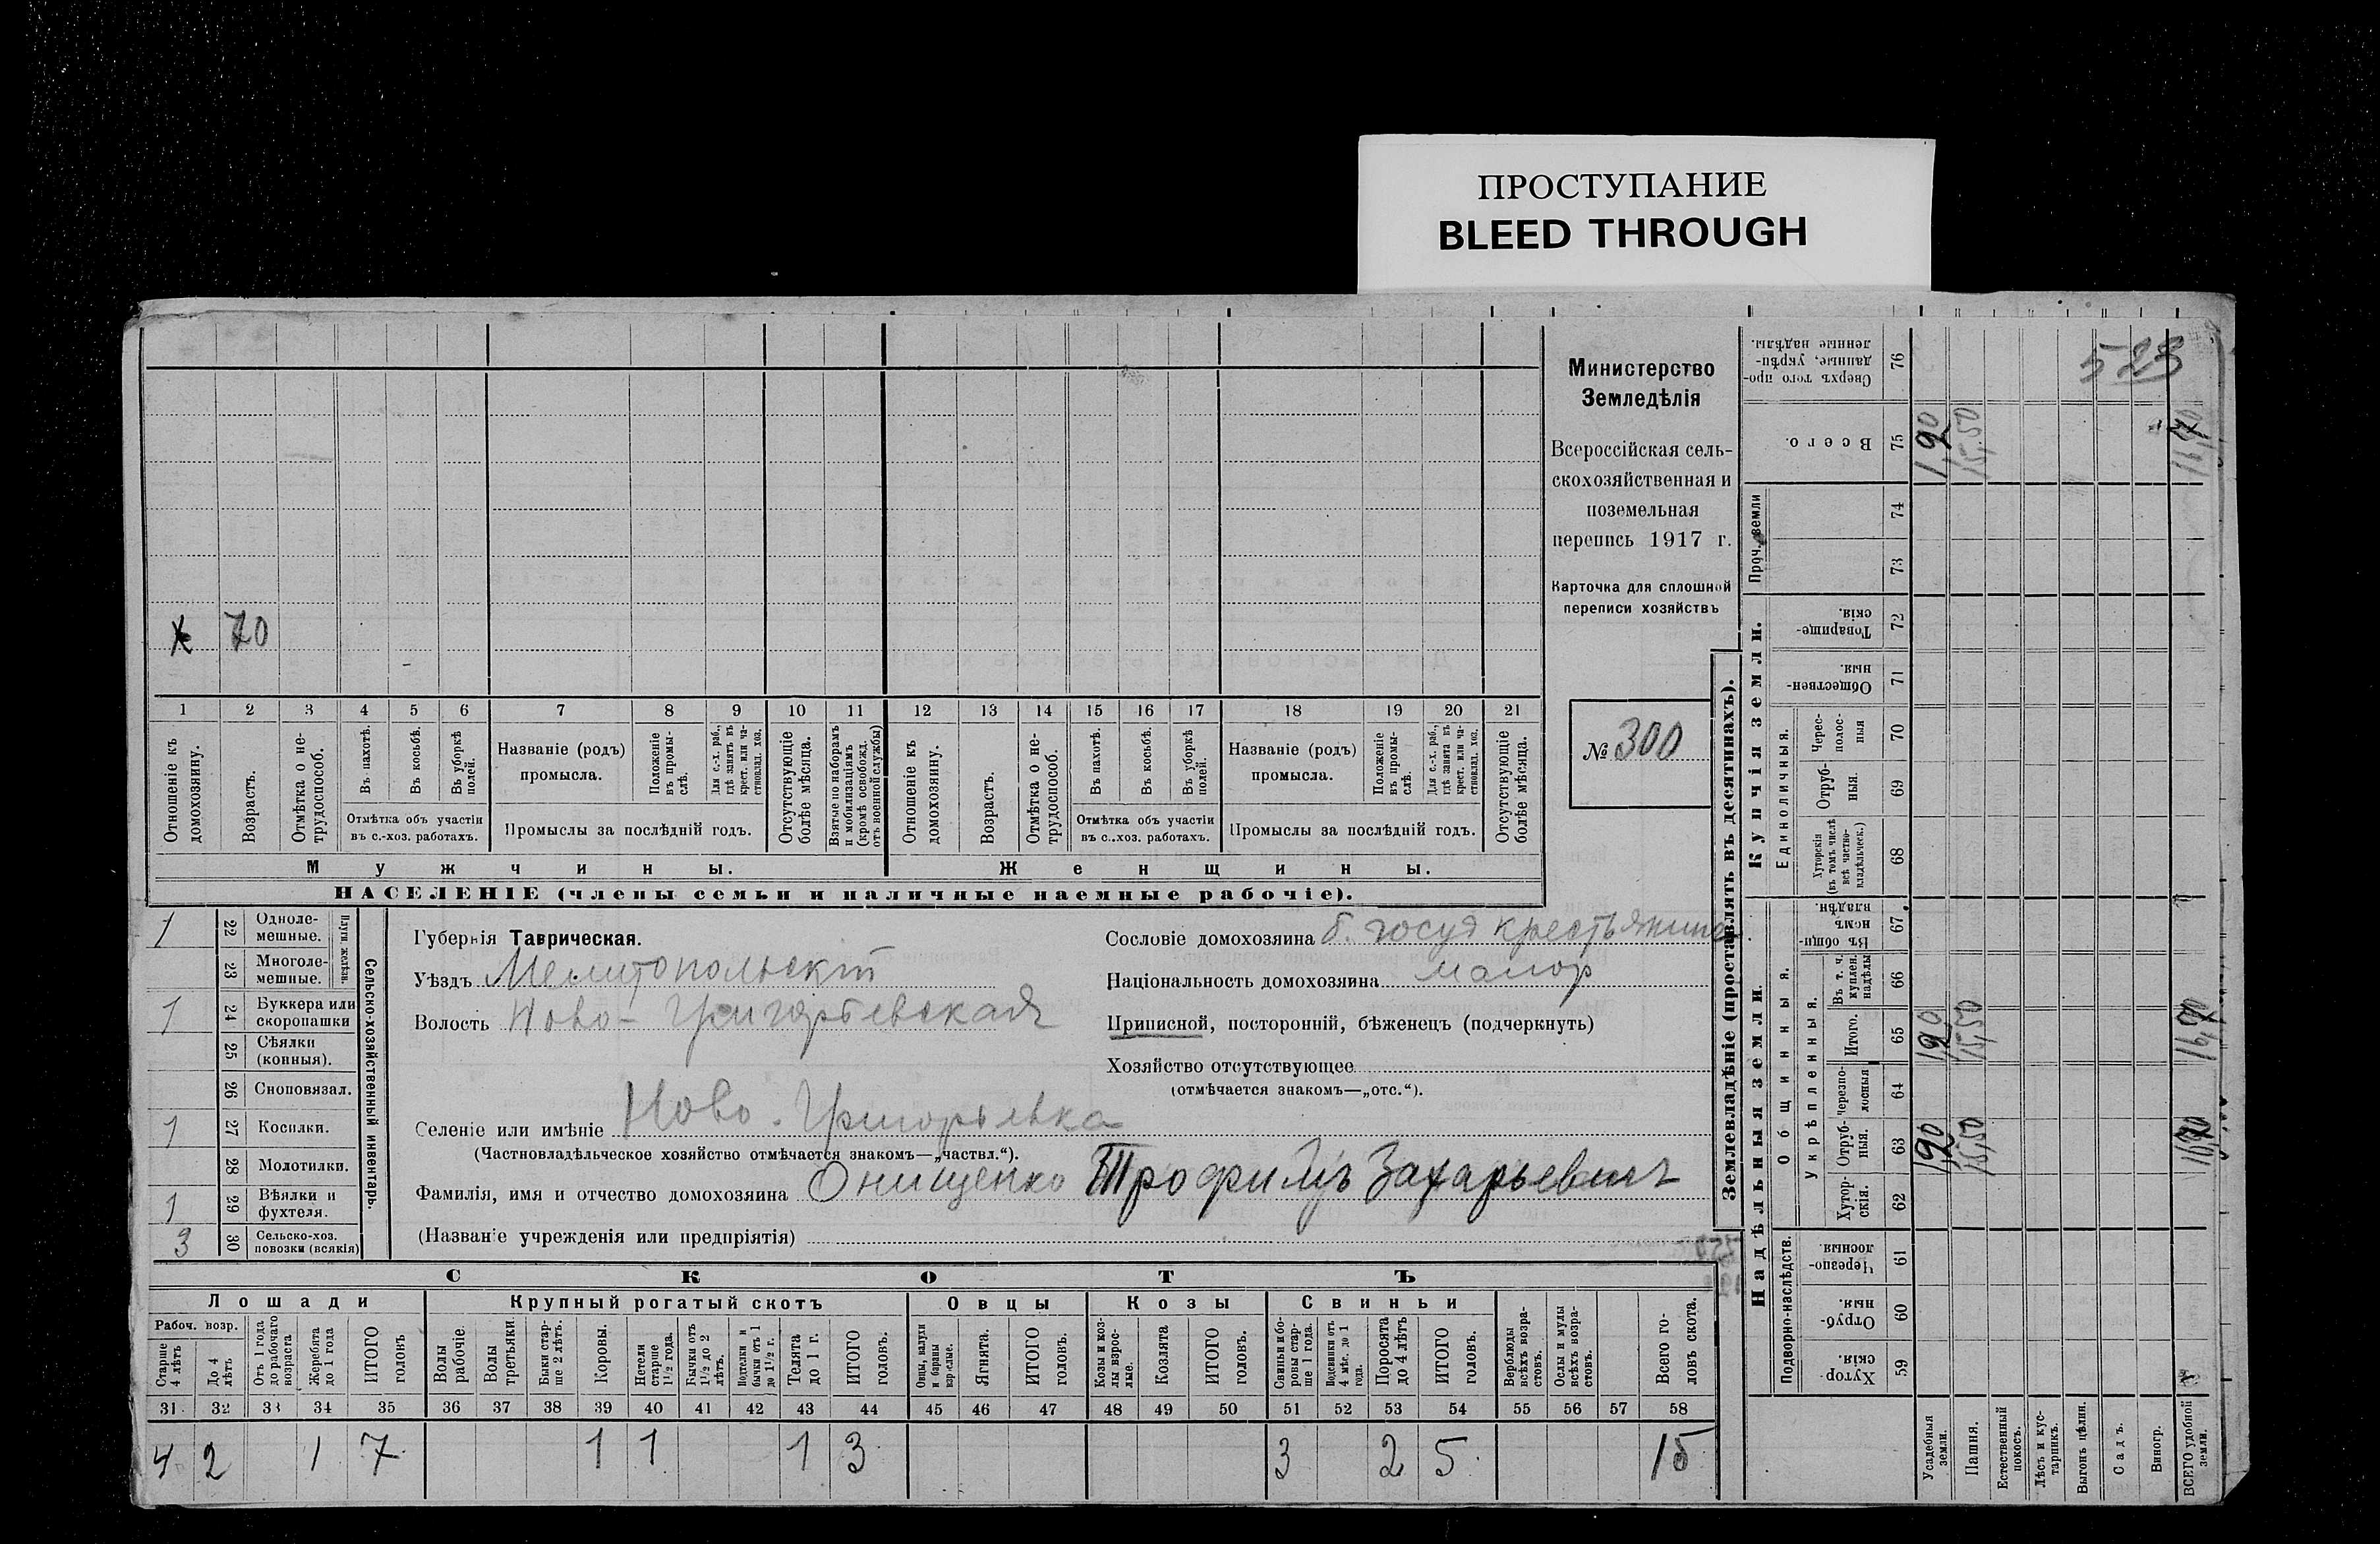 ПРОСТУПАНИЕ
BLEED THROUGH
Министерство
Земледѣлія
Всероссійская сель-
скохозяйственная и
поземельная
перепись 1917 г.
Карточка для сплошной
переписи хозяйствъ
№ 300
523
х 70
1 2 3 4 5 6 7 8 9 10 11 12 13 14 15 16 17 18 19 20 21
Отношеніе къ домохозяину.
Возрастъ.
Отмѣтка о не-трудоспособ.
Въ пахотѣ.
Въ косьбѣ.
Въ уборкѣ полей.
Отмѣтка объ участіи
въ с.-хоз. работахъ.
Названіе (родъ)
промысла.
Положеніе въ промы-слѣ.
Для с.-х. раб., гдѣ занятъ въ крест. или ча-стновлад. хоз.
Промыслы за послѣдній годъ.
Отсутствующіе болѣе мѣсяца.
Взятые по наборамъ и мобилизаціямъ (кромѣ освобожд. отъ военной службы)
Отношеніе къ домохозяину.
Возрастъ.
Отмѣтка о не-трудоспособ.
Въ пахотѣ.
Въ косьбѣ.
Въ уборкѣ полей.
Отмѣтка объ участіи
въ с.-хоз. работахъ.
Названіе (родъ)
промысла.
Положеніе въ промы-слѣ.
Для с.-х. раб., гдѣ занята въ крест. или ча-стновлад. хоз.
Промыслы за послѣдній годъ.
Отсутствующіе болѣе мѣсяца.
Мужчины. Женщины.
НАСЕЛЕНІЕ (члены семьи и наличные наемные рабочіе).
Сельско-хозяйственный инвентарь.
Плуги желѣзн.
1 22 Одноле-мешные.
23 Многоле-мешные.
1 24 Буккера или скоропашки
25 Сѣялки (конныя).
26 Сноповязал.
1 27 Косилки.
28 Молотилки.
1 29 Вѣялки и фухтеля.
3 30 Сельско-хоз. повозки (всякія)
Губернія Таврическая.
Уѣздъ Мелитопольскій
Волость Ново-Григорьевская
Селеніе или имѣніе Ново-Григорьевка
(Частновладѣльческое хозяйство отмѣчается знакомъ—„частвл.“).
Фамилія, имя и отчество домохозяина Онищенко Трофимъ Захарьевич
(Названіе учрежденія или предпріятія)
Сословіе домохозяина б. госуд крестьянина
Національность домохозяина малор
Приписной, посторонній, бѣженецъ (подчеркнуть)
Хозяйство отсутствующее
(отмѣчается знакомъ—„отс.“).
СКОТЪ
Лошади Крупный рогатый скотъ Овцы Козы Свиньи
Рабоч. возр.
Старше 4 лѣтъ
До 4 лѣтъ
Отъ 1 года до рабочаго возраста
Жеребята до 1 года
ИТОГО головъ
Волы рабочіе.
Волы третьяки.
Быки стар-ше 2 лѣтъ.
Коровы.
Нетели старше 1½ года.
Бычки отъ 1½ до 2 лѣтъ.
Подтелки и бычки отъ 1 до 1½ г.
Телята до 1 г.
ИТОГО головъ.
Овцы, валухи и бараны взрослые.
Ягнята.
ИТОГО головъ.
Козы и коз-лы взрос-лые.
Козлята
ИТОГО головъ.
Свиньи и бо-ровы стар-ше 1 года.
Подсвинки отъ 4 мѣс. до 1 года.
Поросята до 4 лѣтъ
ИТОГО головъ.
Верблюды всѣхъ возра-стовъ.
Ослы и мулы всѣхъ возра-стовъ.
Всего го-ловъ скота.
31 32 33 34 35 36 37 38 39 40 41 42 43 44 45 46 47 48 49 50 51 52 53 54 55 56 57 58
4 2 1 7 1 1 1 3 3 2 5 15
Землевладѣніе (проставлять въ десятинахъ).
Надѣльныя земли
Купчія земли.
Проч. земли
Подворно-наслѣдств.
Общинныя.
Укрѣпленныя.
Единоличныя.
Сверхъ того про-данные, укрѣп-ленные надѣлы. 76
Всего. 75 1,90 15,50
74
73
Товарище-скія. 72
Обществен-ныя. 71
Черес-полос-ныя 70
Отруб-ныя. 69
Хуторскія (въ томъ числѣ всѣ частно-владѣльческ.) 68
Въ общи-номъ владѣн. 67
Въ т. ч. куплен. надѣлы 66
Итого. 65 1,90 15,50 16,70
Черезпо-лосныя 64
Отруб-ныя. 63 1,90 15,50
Хутор-скія. 62
Черезпо-лосныя. 61
Отруб-ныя. 60
Хутор-скія. 59
Усадебныя земли.
Пашня.
Естественный покосъ.
Лѣсъ и кус-тарникъ.
Выгонъ цѣлин.
Садъ.
Виногр.
ВСЕГО удобной земли.